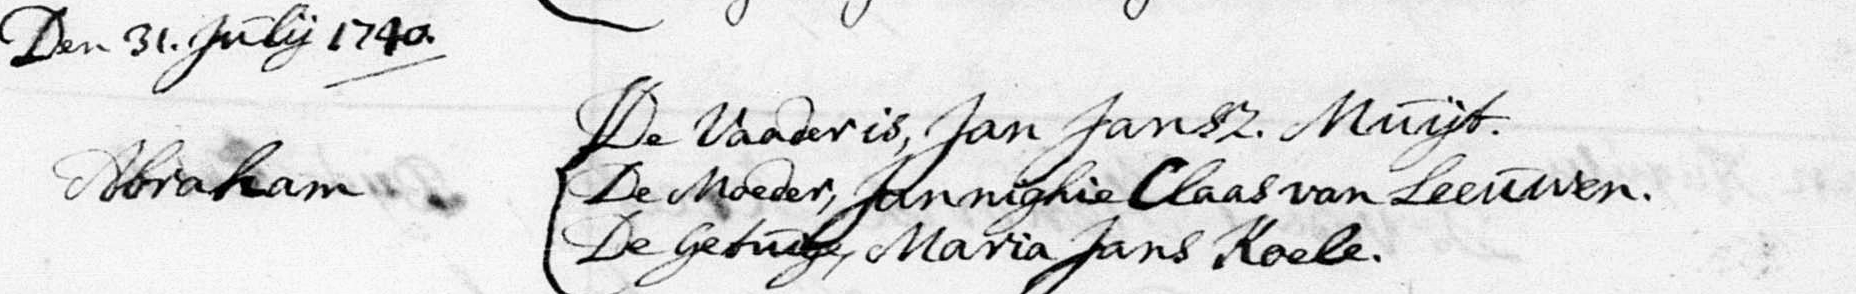 Den 31. Julij 1740.
De Vaader is, Jan Jansz. Muijt.
Abraham
De Moeder, Jannighie Claas van Leeuwen.
De getuige, Maria Jans Koele.